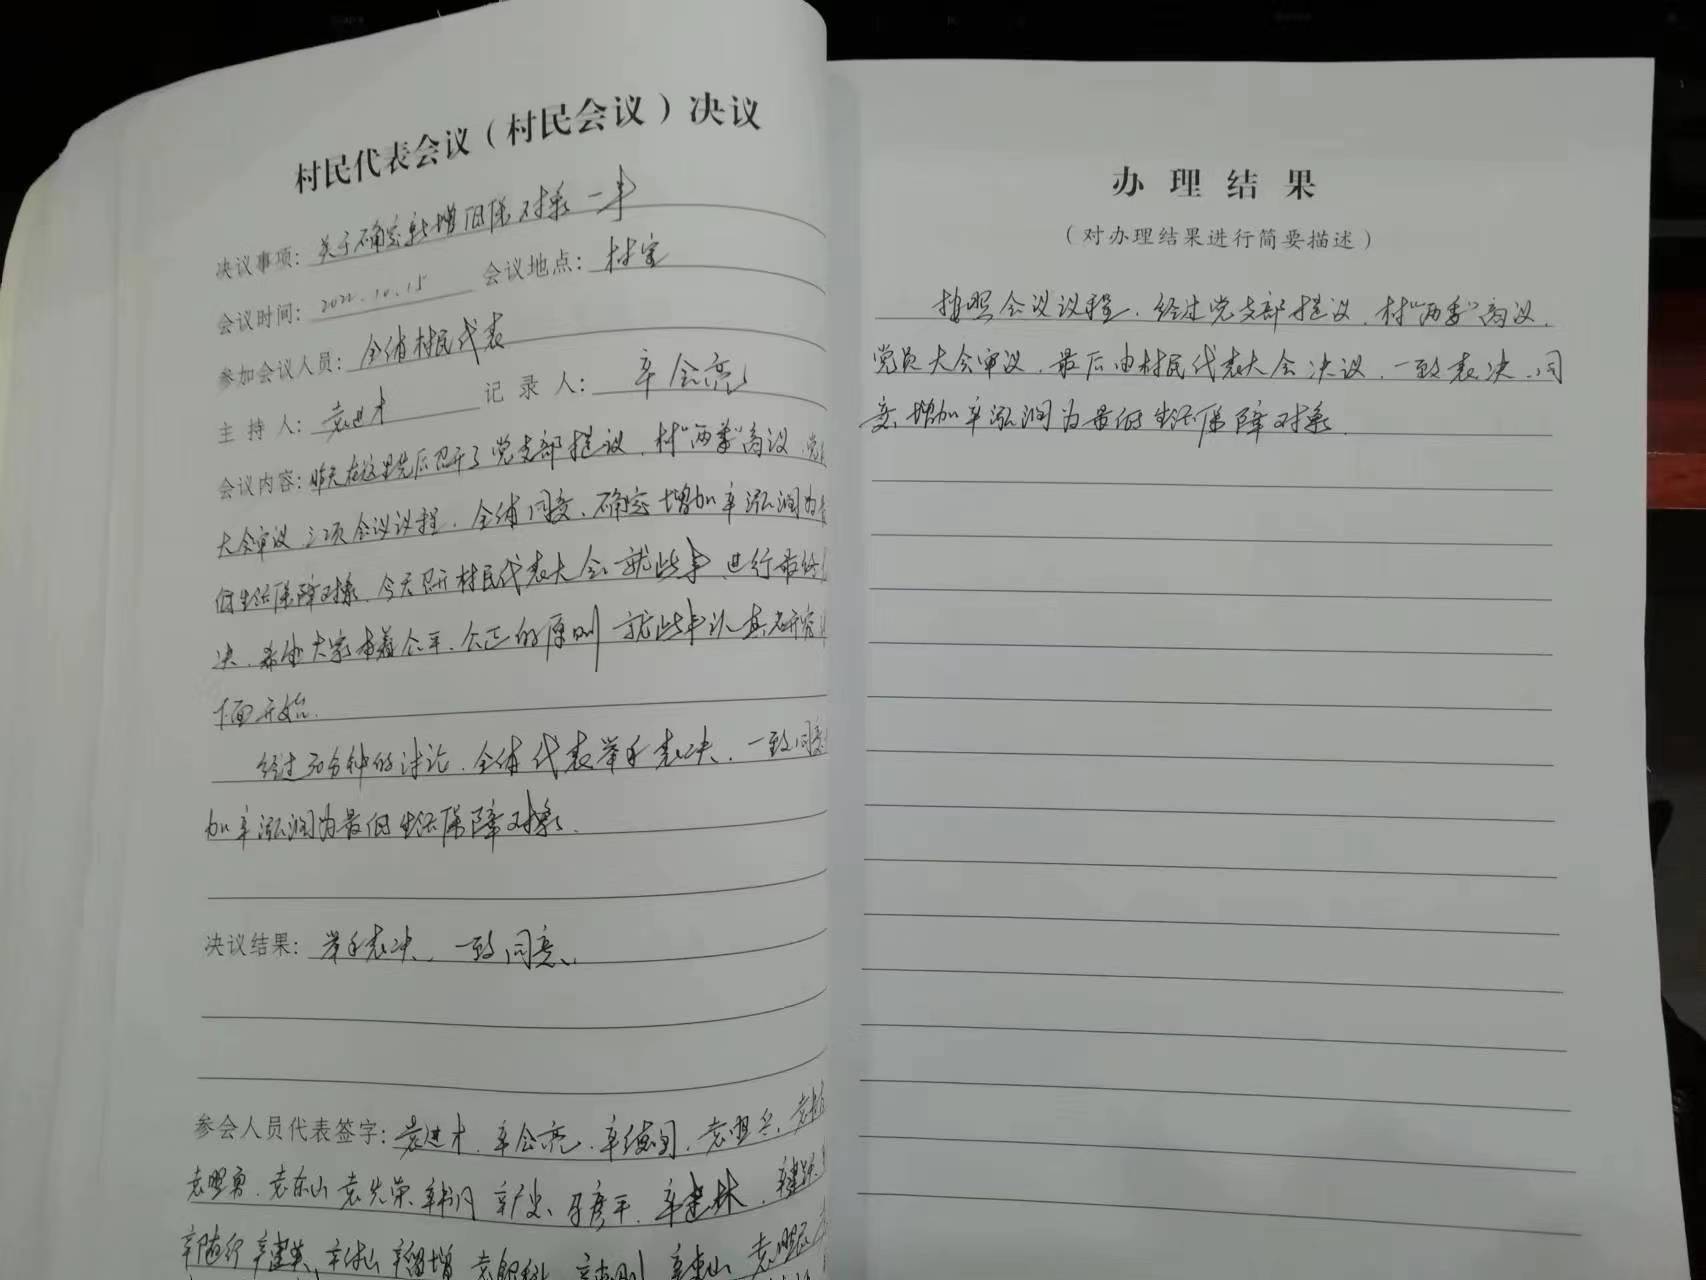 村民代表会议（村民会议）决议
决议事项：关于确定新增低保对象一事
会议时间：2022.10.15 会议地点：村室
参加会议人员：全体村民代表
主持人：袁进才 记录人：辛会亮
会议内容：昨天在这里先后召开了党支部提议、村“两委”商议、党员
大会审议三项会议议程，全体同意，确定增加辛泓润为最
低生活保障对象，今天召开村民代表大会就此事进行最终
决，希望大家本着公平、公正的原则就此事认真研究
下面开始。
经过30分钟的讨论，全体代表举手表决，一致同意
加辛泓润为最低生活保障对象。
决议结果：举手表决，一致同意。
参会人员代表签字：袁进才、辛会亮、
袁东山 袁先荣 辛建林
办理结果
（对办理结果进行简要描述）
按照会议议程，经过党支部提议、村“两委”商议、
党员大会审议，最后由村民代表大会决议，一致表决，同
意增加辛泓润为最低生活保障对象。